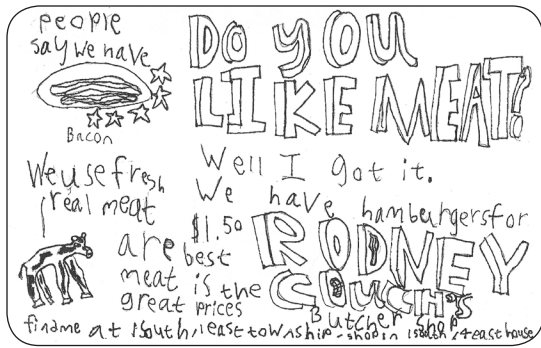 people
say we have
Bacon
DO YOU
LIKE MEAT?
Well I got it.
We have hamburgers for
$1.50
We use fresh
real meat
are best
meat is the
great prices
RODNEY
COUCH'S
Butcher shop
find me at 1 South, 1 east township - shop in 1 South, 4 east house